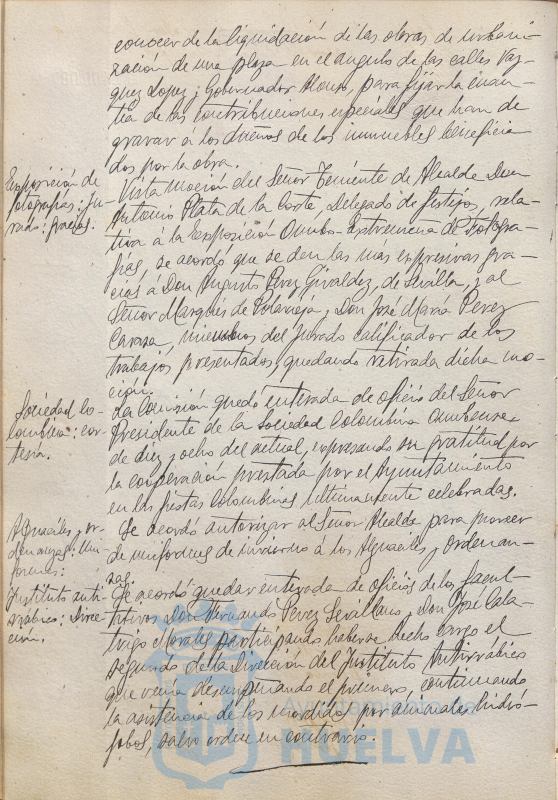 conocer de la liquidación de las obras de urbani-
zación de una plaza en el angulo de las calles Vaz-
quez Lopez y Gobernador Alonso, para fijar la cuan-
tia de las contribuciones especiales que han de
gravar á los dueños de los inmuebles beneficia
dos por la obra.
Exposición de
fotografias: Ju-
rado: gracias.
Vista moción del Señor Teniente de Alcalde Don
Antonio Plata de la Corte, Delegado de festejos, rela-
tiva á la Exposición Onubo-Extremeña de Fotogra-
fias, se acordo que se den las más expresivas gra-
cias á Don Augusto Perez Giraldez, de Sevilla, y al
Señor Marques de y Don José Maria Perez
Carasa, miembros del Jurado calificador de los
trabajos presentados, quedando retirada dicha mo-
ción.
Sociedad Co-
lombina: cor-
tesia.
La Comisión quedó enterada de oficio del Señor
Presidente de la Sociedad Colombina Onubense,
de diez y ocho del actual, expresando su gratitud por
la cooperación prestada por el Ayuntamiento
en las fiestas Colombinas ultimamente celebradas.
Alguaciles y or-
denanzas: Uni-
formes:
Se acordó autorizar al Señor Alcalde para proveer
de uniformes de invierno á los Alguaciles y ordenan-
zas.
Instituto anti-
rrábico: Direc-
ción.
Se acordó quedar enterada de oficios de los facul-
tativos Don Fernando Perez Sevillano y Don José Cala-
trigo Morales participando haberse hecho cargo el
segundo de la Dirección del Instituto Antirrábico
que venia desempeñando el primero, continuando
la asistencia de los mordidos por animales hidró-
fobos, salvo orden en contrario.
Ayuntamiento de
HUELVA